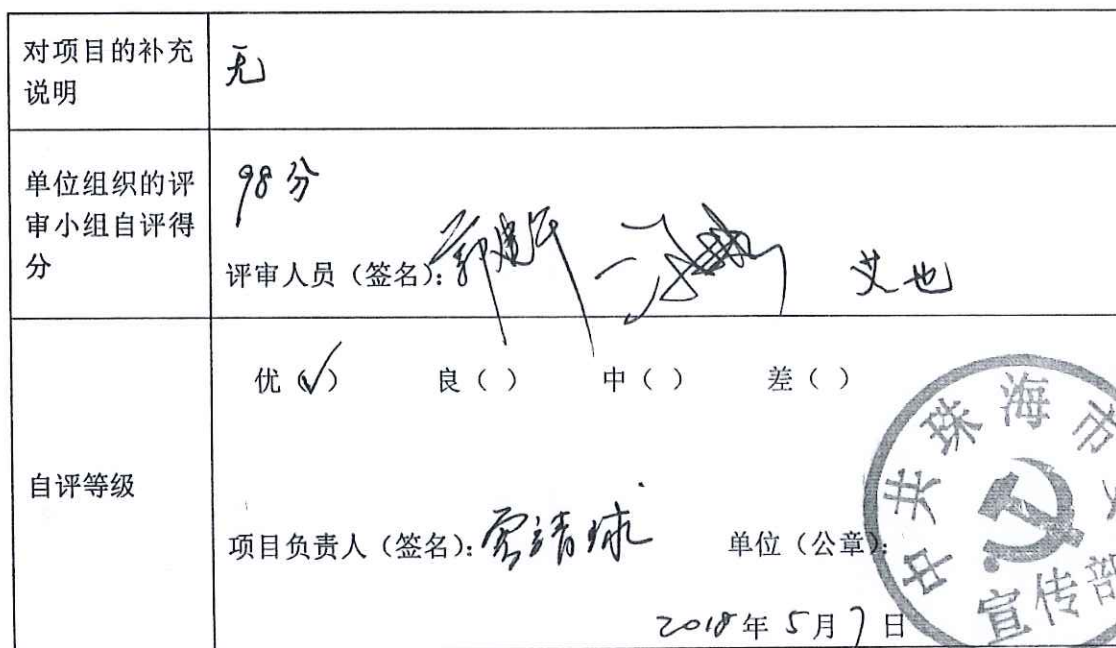 对项目的补充
说明
无
单位组织的评
审小组自评得
分
98分
评审人员（签名）：郭建平 艾也
自评等级
优（✓） 良（ ） 中（ ） 差（ ）
项目负责人（签名）： 单位（公章）：
2018年5月7日
中共珠海市
宣传部